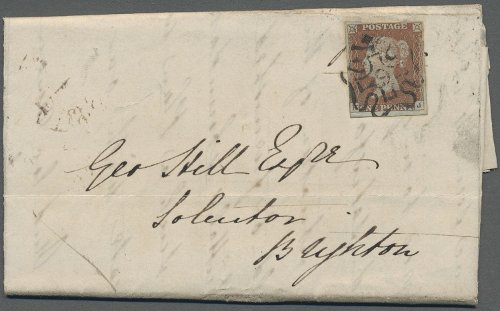 POSTAGE
Geo Hill Esqre
Solicitor
Brighton